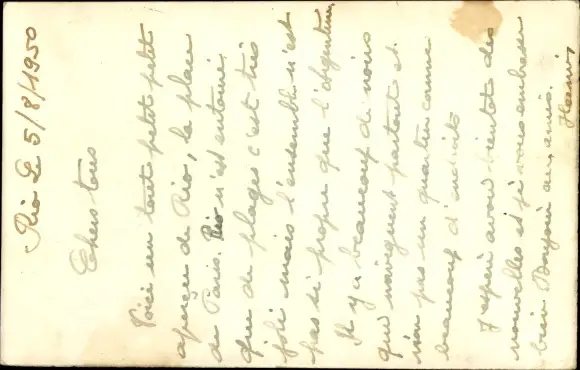 Rio Le 5/8/1950
Chers tous
Voici un tout petit petit
aperçu de Rio, la place
de Paris. Rio n'est entouré
que de plages c'est très
joli mais l'ensemble n'est
pas si propre que l'Argentine,
Il y a beaucoup de noirs
qui naviguent partout et
non pas un quartier comme
beaucoup d'endroits
J'espère avoir bientôt des
nouvelles et je vous embrasse
bien Bonjour aux amis.
Henri